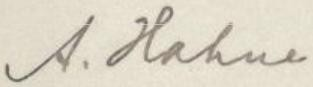 A. Hahne